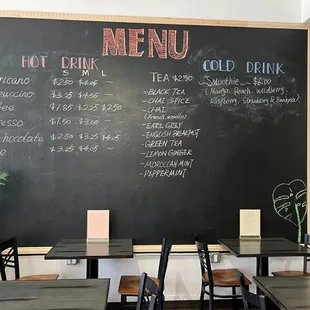 MENU
HOT DRINK
S M L
ricano $2.50 $4.05 -
puccino $3.25 $4.55 -
fee $1.85 $2.25 $2.50
presso $1.50 $3.00 -
chocolate $2.50 $3.25 $4.05
e $3.25 $4.55 -
TEA $2.50
- BLACK TEA
- CHAI SPICE
- CHAI
- EARL GREY
- ENGLISH BREAKFAST
- GREEN TEA
- LEMON GINGER
- MOROCCAN MINT
- PEPPERMINT
COLD DRINK
Smoothie $6.00
(Mango, Peach, wildberry,
Raspberry, Strawberry & Banana)